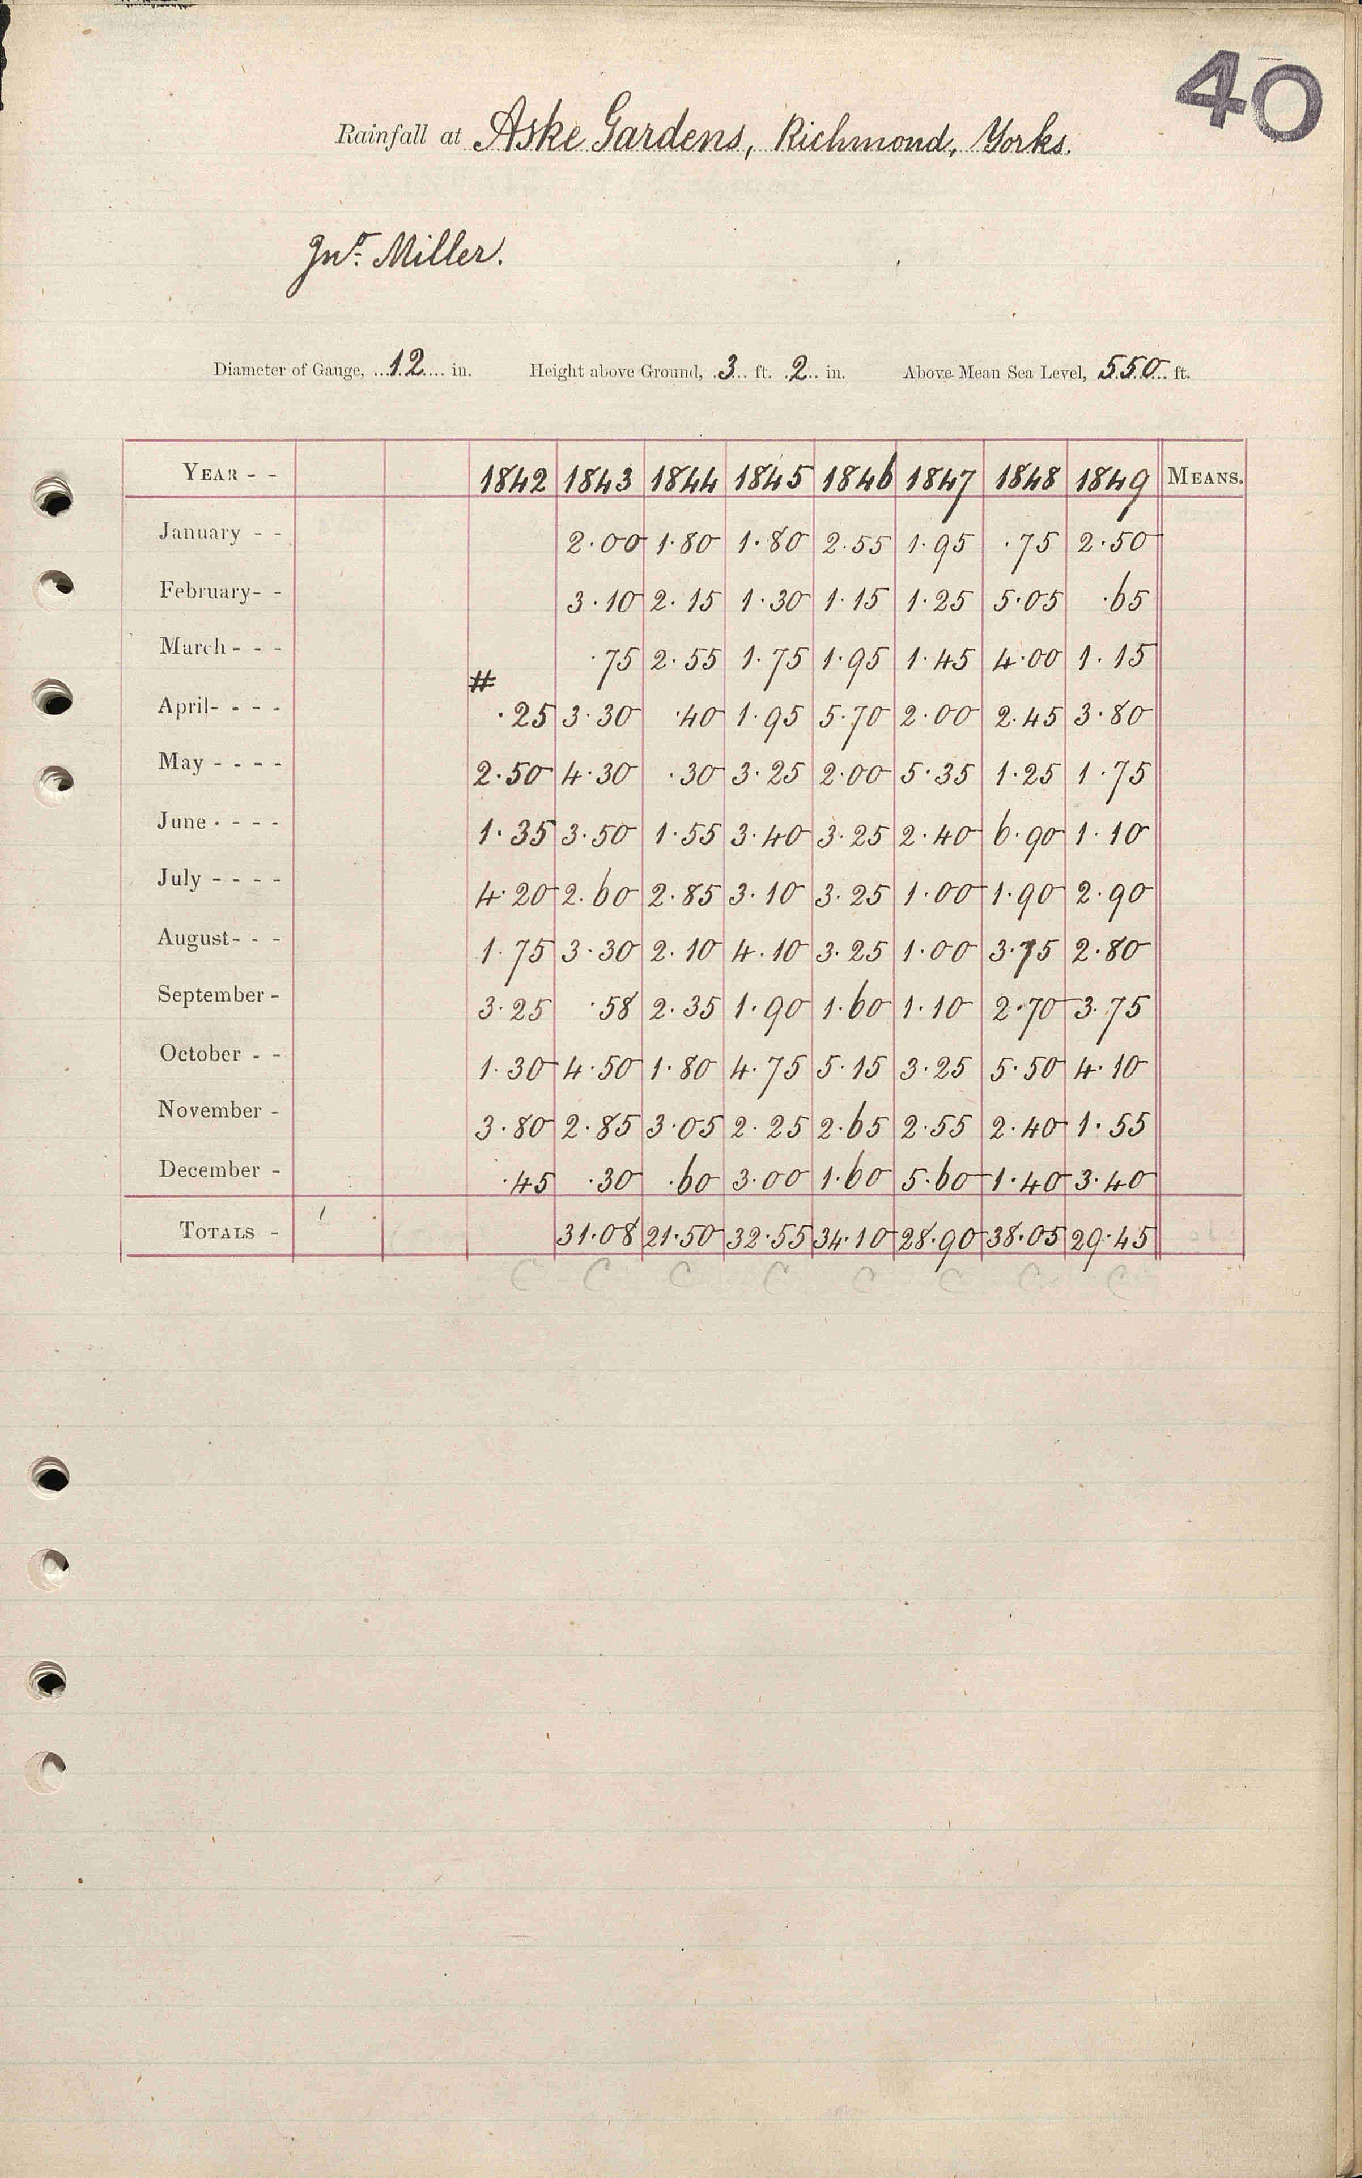 40
Rainfall at Aske Gardens, Richmond, Yorks.
Jnr. Miller.
Diameter of Gauge, 12 in. Height above Ground, 3 ft. 2 in. Above Mean Sea Level, 550 ft.
YEAR - - 1842 1843 1844 1845 1846 1847 1848 1849 MEANS.
January - - 2.00 1.80 1.80 2.55 1.95 .75 2.50
February - - 3.10 2.15 1.30 1.15 1.25 5.05 .65
March - - - .75 2.55 1.75 1.95 1.45 4.00 1.15
#
April - - - - .25 3.30 .40 1.95 5.70 2.00 2.45 3.80
May - - - - 2.50 4.30 .30 3.25 2.00 5.35 1.25 1.75
June - - - - 1.35 3.50 1.55 3.40 3.25 2.40 6.90 1.10
July - - - - 4.20 2.60 2.85 3.10 3.25 1.00 1.90 2.90
August - - - 1.75 3.30 2.10 4.10 3.25 1.00 3.75 2.80
September - 3.25 .58 2.35 1.90 1.60 1.10 2.70 3.75
October - - 1.30 4.50 1.80 4.75 5.15 3.25 5.50 4.10
November - 3.80 2.85 3.05 2.25 2.65 2.55 2.40 1.55
December - .45 .30 .60 3.00 1.60 5.60 1.40 3.40
TOTALS - 31.08 21.50 32.55 34.10 28.90 38.05 29.45
C C C C C C C C